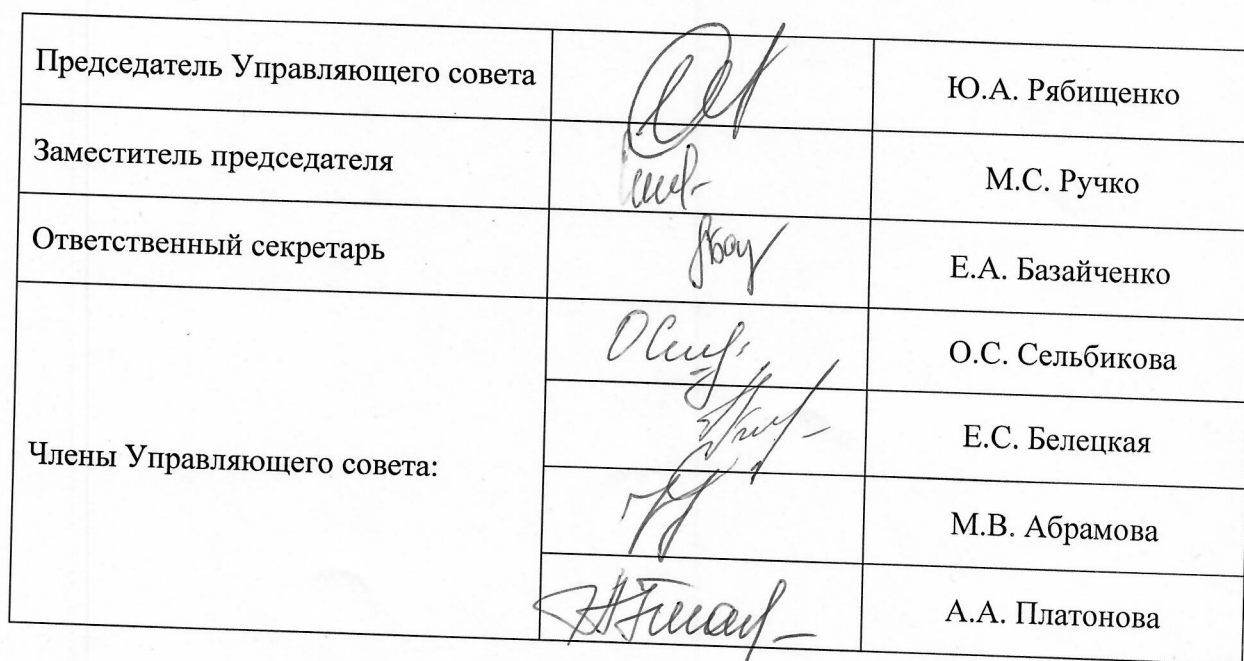 Председатель Управляющего совета
Ю.А. Рябищенко
Заместитель председателя
М.С. Ручко
Ответственный секретарь
Е.А. Базайченко
Члены Управляющего совета:
О.С. Сельбикова
Е.С. Белецкая
М.В. Абрамова
А.А. Платонова